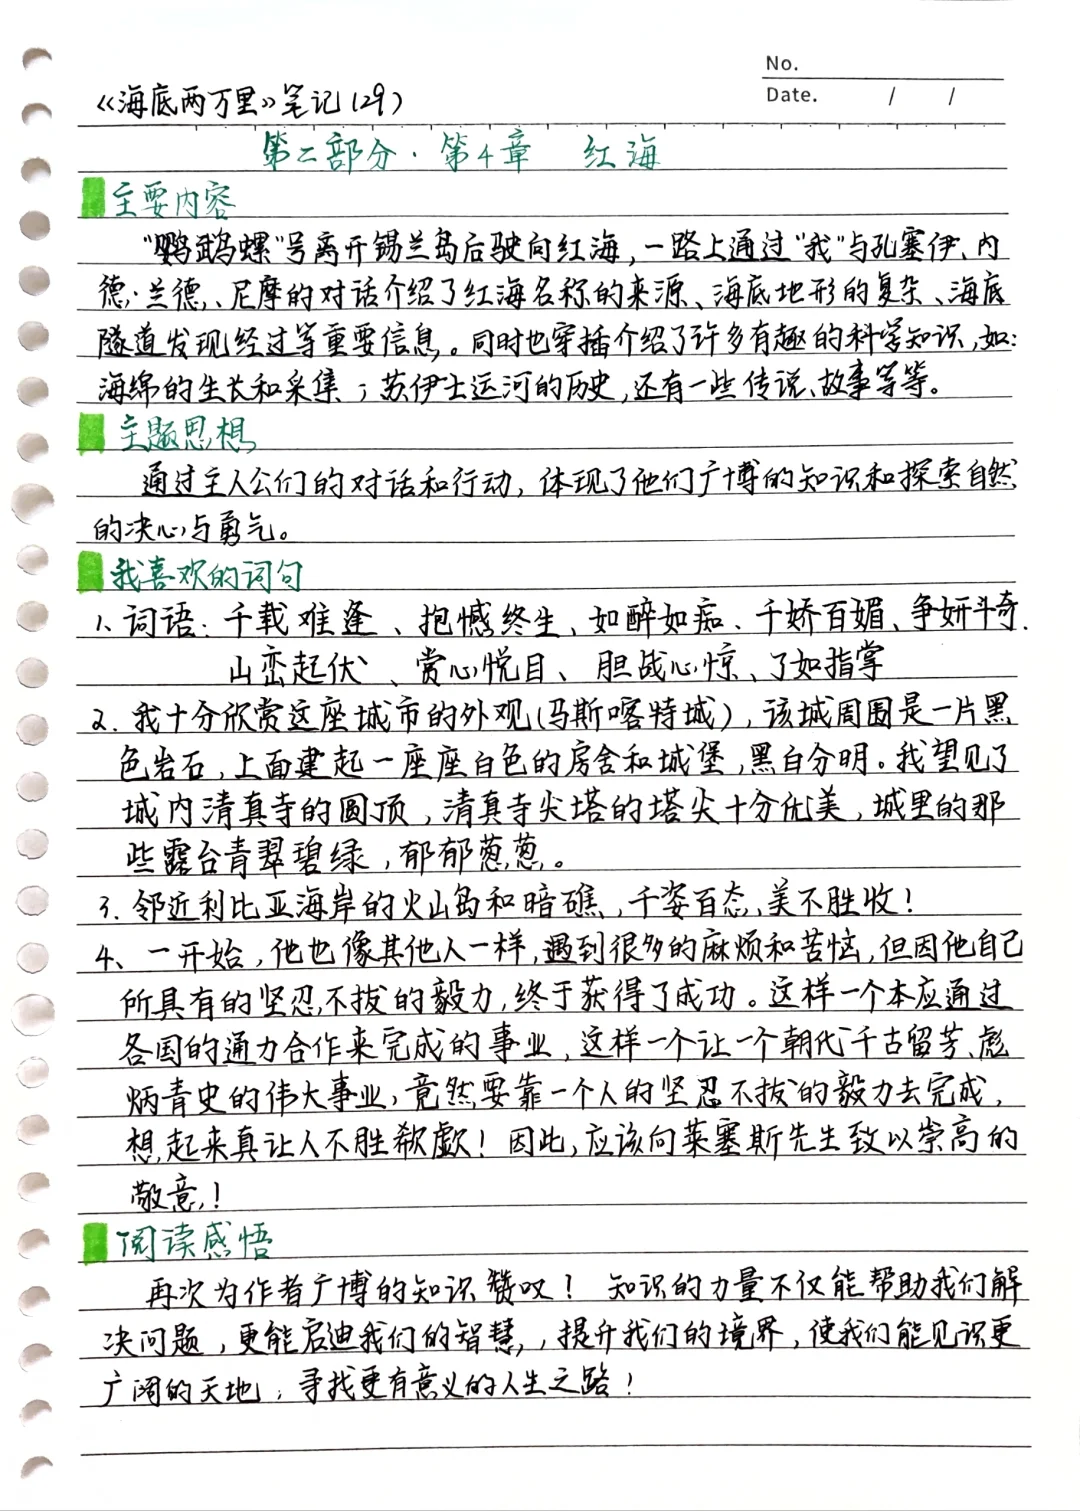 No.
Date. / /
《海底两万里》笔记(29)
第二部分·第4章 红海
主要内容
"鹦鹉螺"号离开锡兰岛后驶向红海,一路上通过"我"与孔塞伊、内
德·兰德、尼摩的对话介绍了红海名称的来源、海底地形的复杂、海底
隧道发现经过等重要信息。同时也穿插介绍了许多有趣的科学知识,如:
海绵的生长和采集;苏伊士运河的历史,还有一些传说、故事等等。
主题思想
通过主人公们的对话和行动,体现了他们广博的知识和探索自然
的决心与勇气。
我喜欢的词句
1、词语:千载难逢、抱憾终生、如醉如痴、千娇百媚、争妍斗奇、
山峦起伏、赏心悦目、胆战心惊、了如指掌
2.我十分欣赏这座城市的外观(马斯喀特城),该城周围是一片黑
色岩石,上面建起一座座白色的房舍和城堡,黑白分明。我望见了
城内清真寺的圆顶,清真寺尖塔的塔尖十分优美,城里的那
些露台青翠碧绿,郁郁葱葱。
3.邻近利比亚海岸的火山岛和暗礁,千姿百态、美不胜收!
4、一开始,他也像其他人一样,遇到很多的麻烦和苦恼,但因他自己
所具有的坚忍不拔的毅力,终于获得了成功。这样一个本应通过
各国的通力合作来完成的事业,这样一个让一个朝代千古留芳、彪
炳青史的伟大事业,竟然要靠一个人的坚忍不拔的毅力去完成,
想起来真让人不胜欷歔!因此,应该向莱塞斯先生致以崇高的
敬意!
阅读感悟
再次为作者广博的知识赞叹!知识的力量不仅能帮助我们解
决问题,更能启迪我们的智慧,提升我们的境界,使我们能见识更
广阔的天地,寻找更有意义的人生之路!